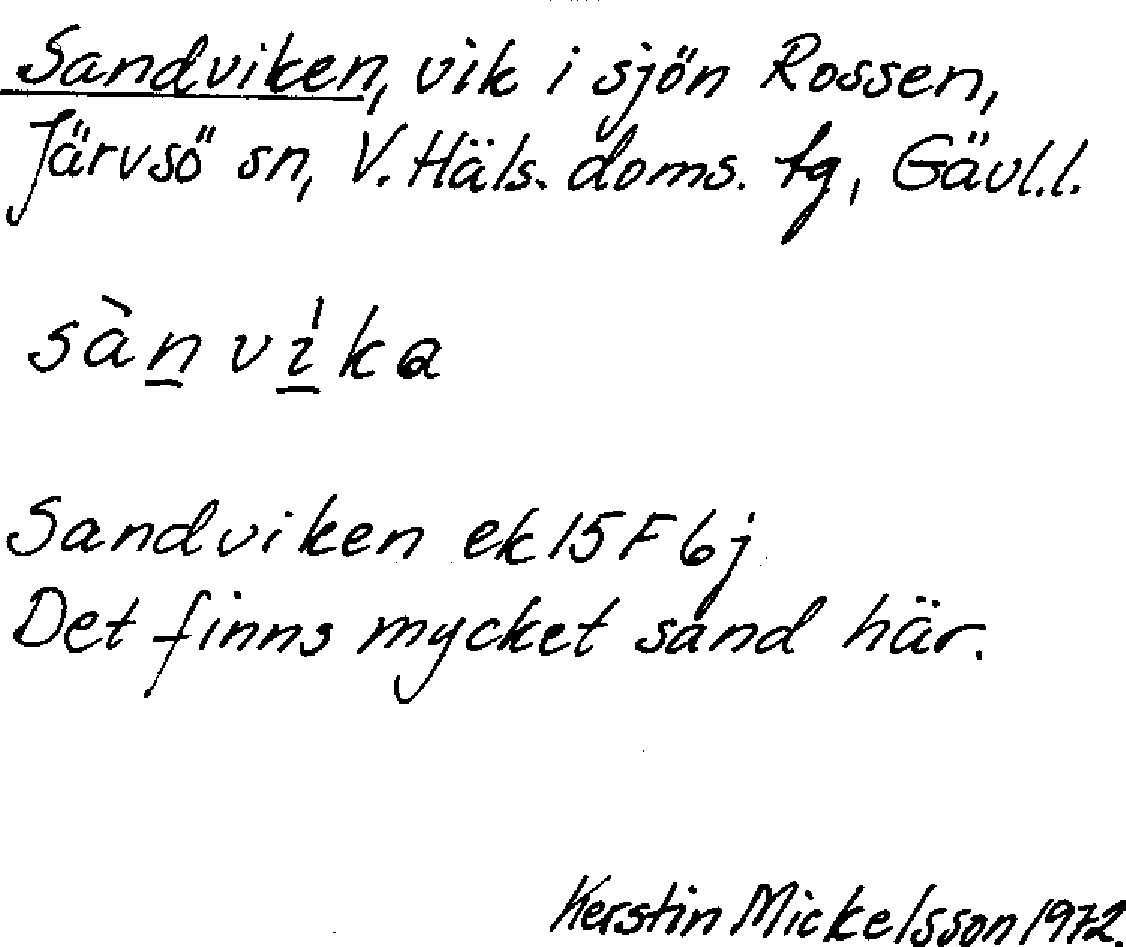 Sandviken, vik i sjön Rossen,
Järvsö sn, V. Häls. doms. tg, Gävl.l.
sànvi̍ka
Sandviken ek 15 F 6j
Det finns mycket sand här.
Kerstin Mickelsson 1972.